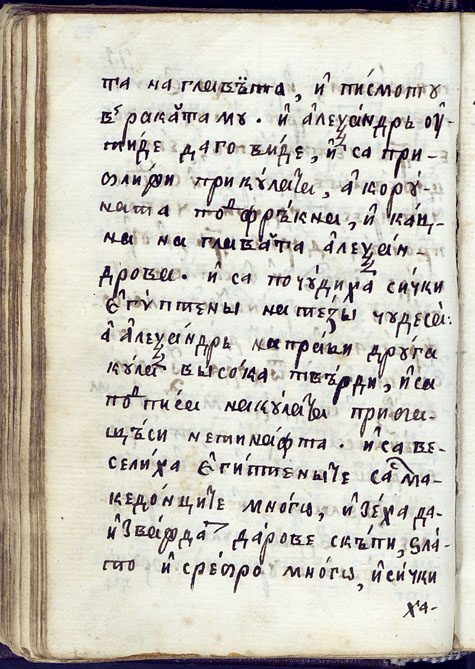 та на главѣта, и҆ пи́смото
въ раката мꙋ. и҆ а҆леѯа́ндръ ѹ҆-
ти́де да го ви́де, и҆ са при-
ближи при кꙋ́лата, а҆ корꙋ́-
ната подфръ́кна, и҆ ка́ц-
на на глава́та а҆леѯа́н-
дрова. и҆ са почꙋ́диха си́чки
є҆гѵ́птены на те́зы чꙋдеса̀:
а҆ а҆леѯа́ндръ напра́ви дрꙋ́га
кꙋ́ла высо́ка твъ́рди, и҆ са
подписа на кꙋ́лата при ога-
и҆ са ве-
сели́ха є҆ги́птеныте са ма-
кедо́нците мно́гѡ, и҆ зе́ха да
и҆зва́жда даро́ве скъ́пи, зла́-
то и҆ сребро̀ мно́гѡ, и҆ си́чки
ха-